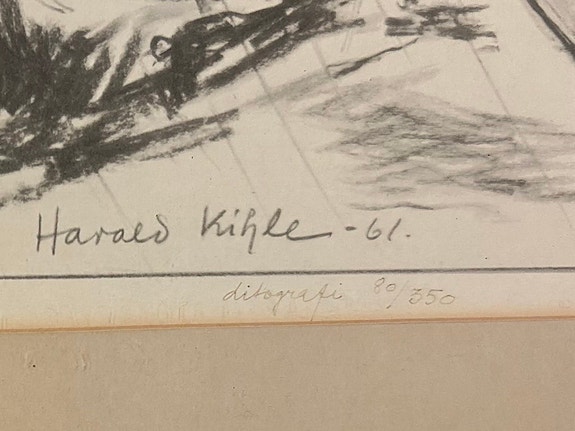 Harald Kihle - 61.
litografi 80/350